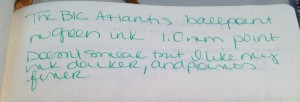 The BIC Atlantis ballpoint
in green ink 1.0mm point
Doesn't smear but I like my
ink darker, and points
finer